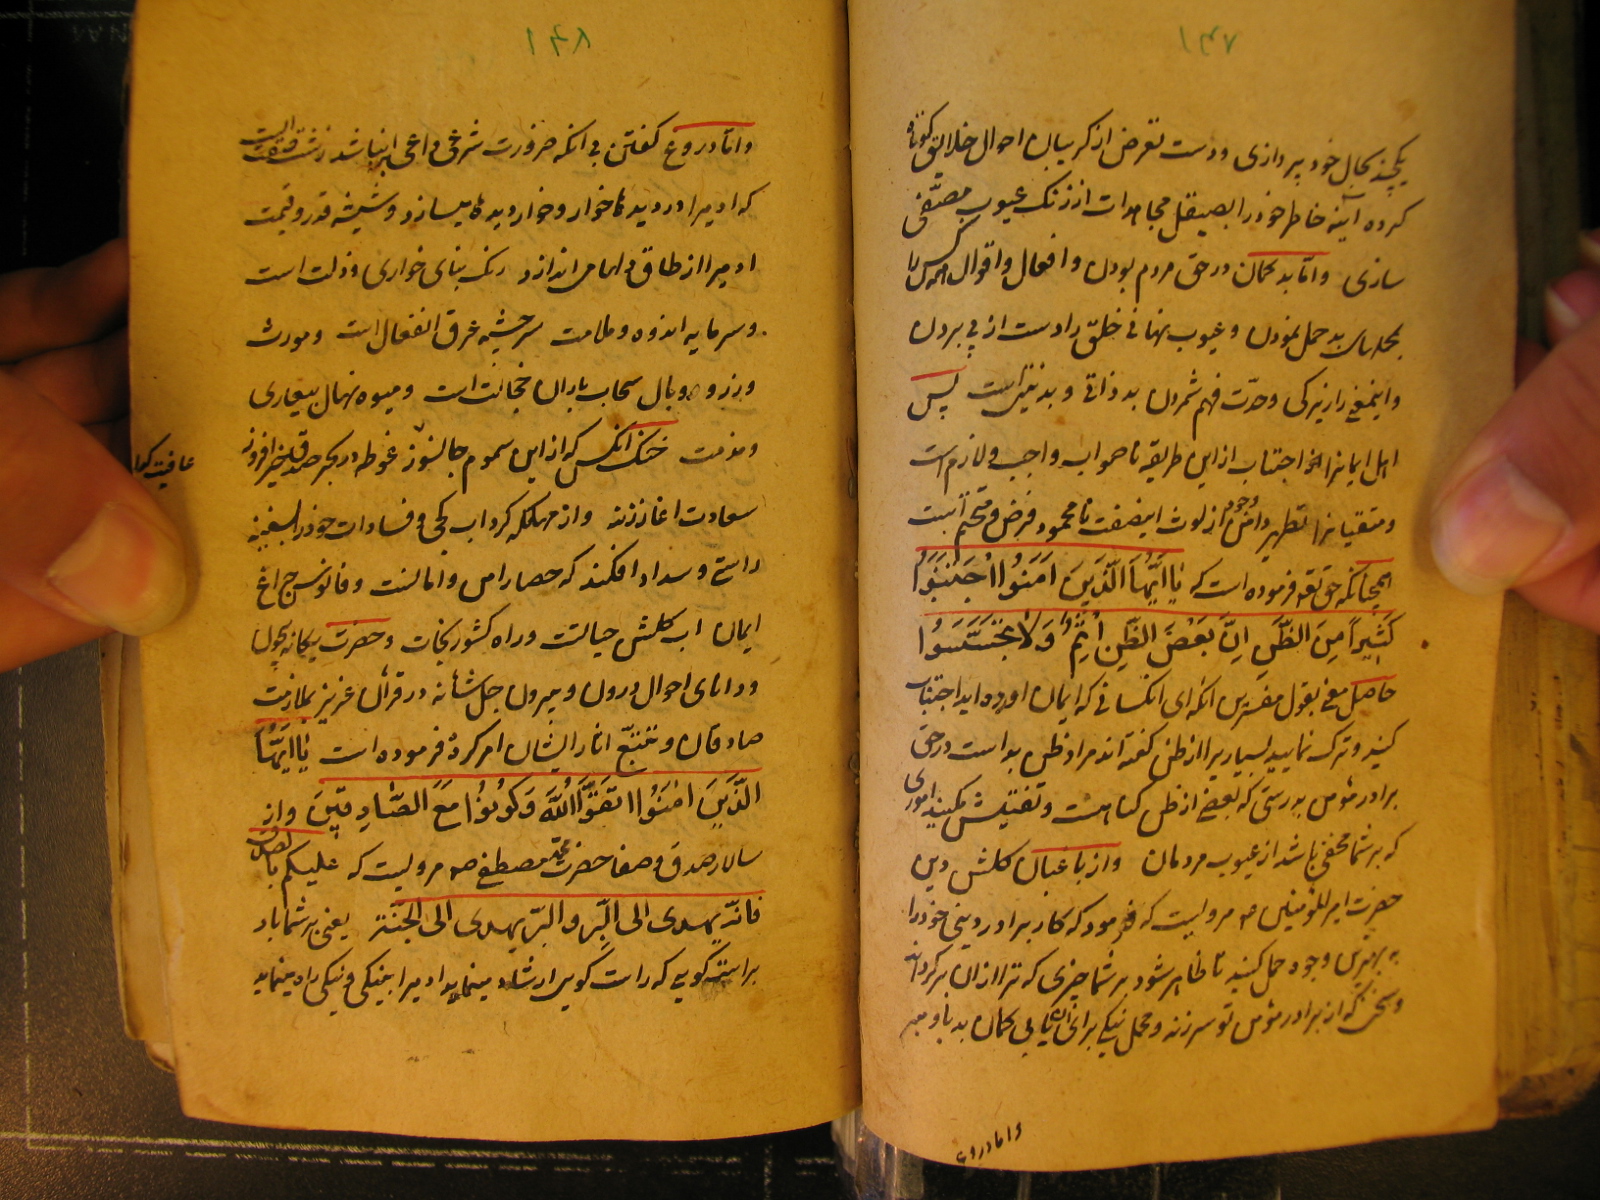 ۱۴۷
یکچند بحال خود پردازی و دست تعرض از کریبان احوال خلایق کوتاه
کرده آینه خاطر خود را بصیقل مجاهدات از زنک عیوب مصفی
سازی و اما بد کمان در حق مردم بودن و افعال و اقوال همه کس را
بمحلهای بد حمل نمودن و عیوب نهانی خلق را دست از پی بردن
و اینمعنی را زیرکی و حدّت فهم شمردن بد ذاتی و بدنیتی است پس
اهل ایمانرا اجتناب از این طریقه ناصواب واجب و لازم است
و متقیانرا تطهیر دامن وجود از لوث اینصفت نامحمود فرض و متحتم است
همچنانکه حق تعه فرموده است که یَا اَیُّهَا الَّذینَ اٰمَنُوا اجْتَنِبُوا
کَثیراً مِنَ الظَّنِّ اِنَّ بَعْضَ الظَّنِّ اِثْمٌ وَلَا تَجَسَّسُوا
حاصل معنی بقول مفسرین آنکه ای آنکسانی که ایمان آورده اید اجتناب
کنید و ترک نمایید بسیاریرا از ظن کفته اند مراد ظن بد است در حق
برادر مؤمن بدرستی که بعضی از ظن کناهست و تفتیش مکنید اموری
که بر شما مخفی باشد از عیوب مردمان و از باغبان کلشن دین
حضرت امیر المؤمنین عم مرویست که فرمود که کار برادر دینی خود را
به بهترین وجوه حمل کنید تا ظاهر شود بر شما چیزی که ترا از آن برکرداند
و سخنی که از برادر مؤمن تو سر زند و محمل نیکی برای آن یابی کمان بد باو مبر
و اما دروغ
۱۴۸
و اما دروغ کفتن بی آنکه ضرورت شرعی داعی بر آن باشد زشت صفتیست
که آدمیرا در دیدها خوار و خوار دیدها میسازد و شیشه قدر و قیمت
آدمیرا از طاق دلها می اندازد رنک بنای خواری و ذلت است
و سرمایه اندوه و ملامت سرچشمه عرق انفعال است و مورث
وزر و وبال سحاب باران خجالت است و میوه نهال بیعاری
و مذمت خنک آنکس که از این سموم جانسوز غوطه در بحر صدق خیر افروز
عافیت
سعادت اغاز زند و از مهلکه کرداب کجی و فسادات خود را بسفینه
راستی و سداد افکند که حصار امن و امانست و فانوس چراغ
ایمان آب کلشن حیاتست و راه کشور نجات و حضرت یکانه بیچون
و دانای احوال درون و بیرون جل شأنه در قرآن عزیز بملازمت
صادقان و تتبع آثار ایشان امر کرده فرموده است یَا اَیُّهَا
الَّذینَ اٰمَنُوا اتَّقُوا اللّٰهَ وَکُونُوا مَعَ الصَّادِقینَ و از
سالار صدق و صفا حضرت محمد مصطفی صه مرویست که علیکم بالصدق
فانّه یهدی الی البِرّ و البرّ یهدی الی الجنّة یعنی بر شما باد
براست کویی که راست کویی ارشاد مینماید آدمیرا بنیکی و نیکی راه مینماید